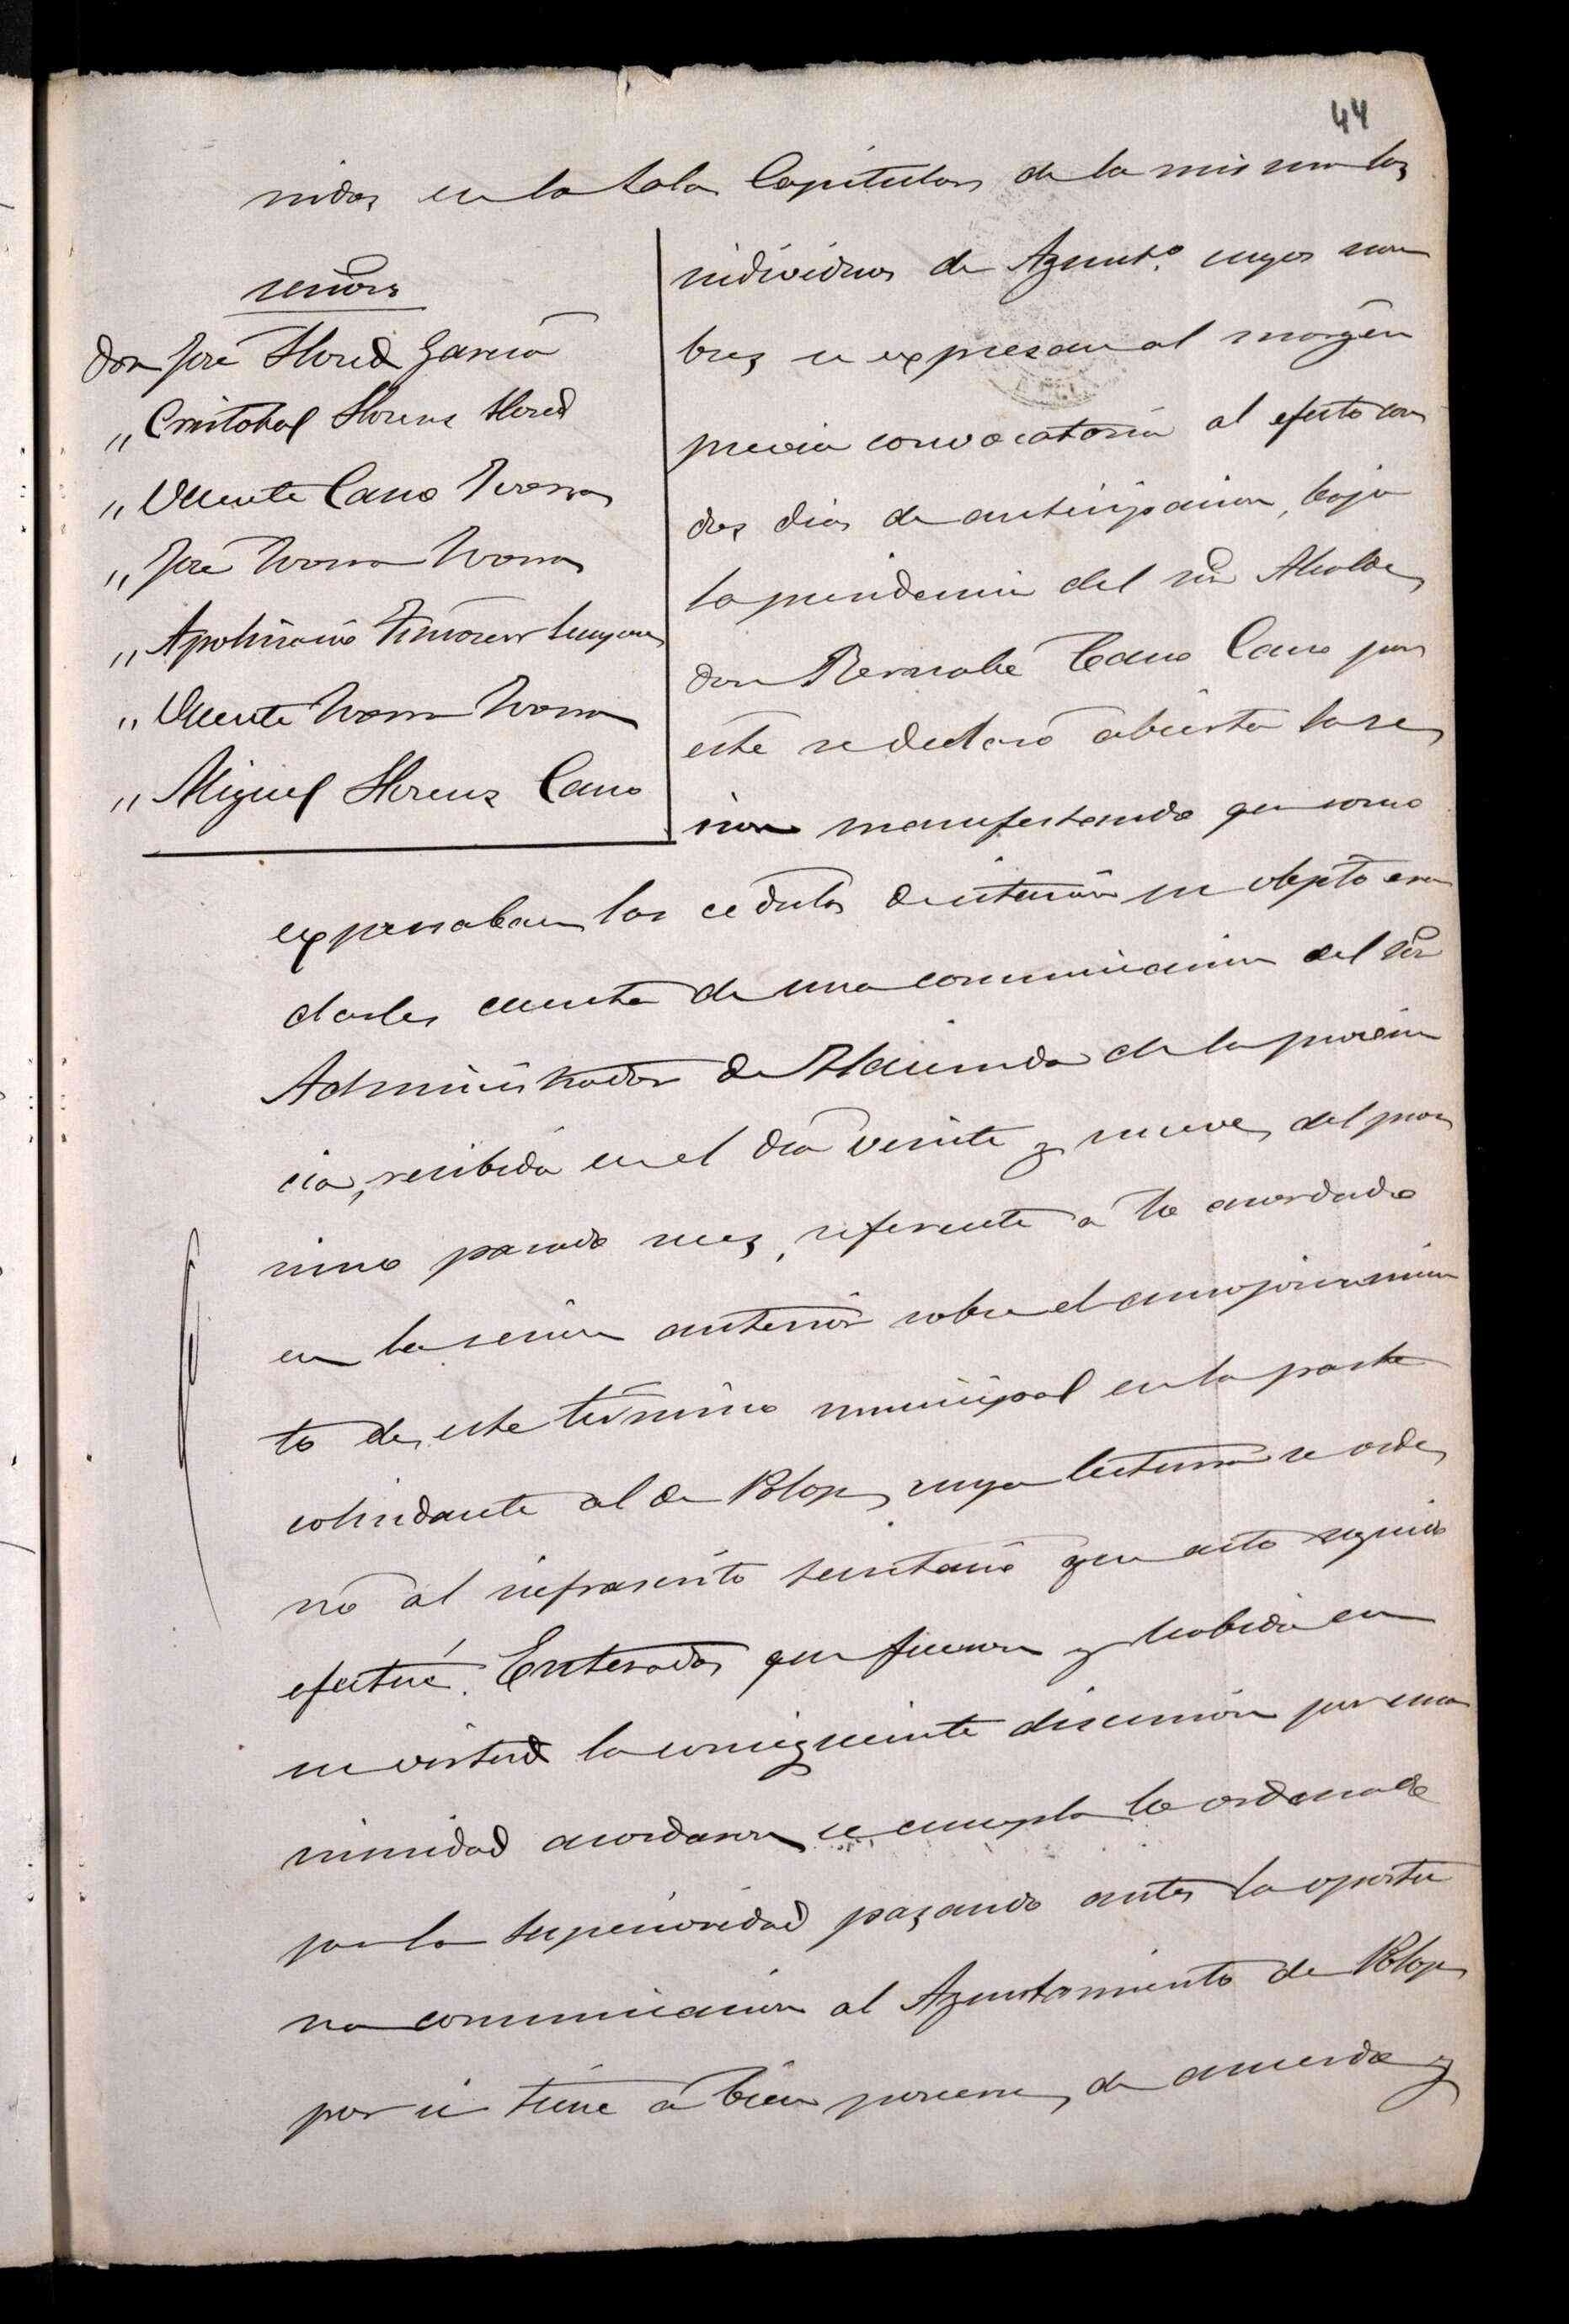 44
nidos en la Sala Capitular de la misma los
señores
Don José Llored García
,, Cristobal Llorens Llored
,, Vicente Cano
,, José
,, Apolinario
,, Vicente
,, Miguel Llorens Cano
individuos de Ayunt.º cuyos nom
bres se expresan al margen
previa convocatoria al efecto con
dos dias de anticipacion, bajo
la presidencia del Sor Alcalde
don Bernabé Cano Cano por
este se declaró abierta la se
sion manifestando que como
expresaban las cedulas de citación su objeto era
darles cuenta de una comunicacion del Sor
Administrador de Hacienda de la provin
cia, recibida en el dia veinte y nueve del pro
ximo pasado mes, referente a lo acordado
en la sesion anterior sobre el amojonamien
to de este término municipal en la parte
colindante al de Polop, cuya lectura se orde
nó al infrascrito Secretario que acto seguido
efectué. Enterados que fueron y habida en
su virtud la consiguiente discusión por una
nimidad acordaron se cumpla lo ordenado
por la Superioridad pasando antes la oportu
na comunicacion al Ayuntamiento de Polop
por si tiene á bien ponerse de acuerdo y